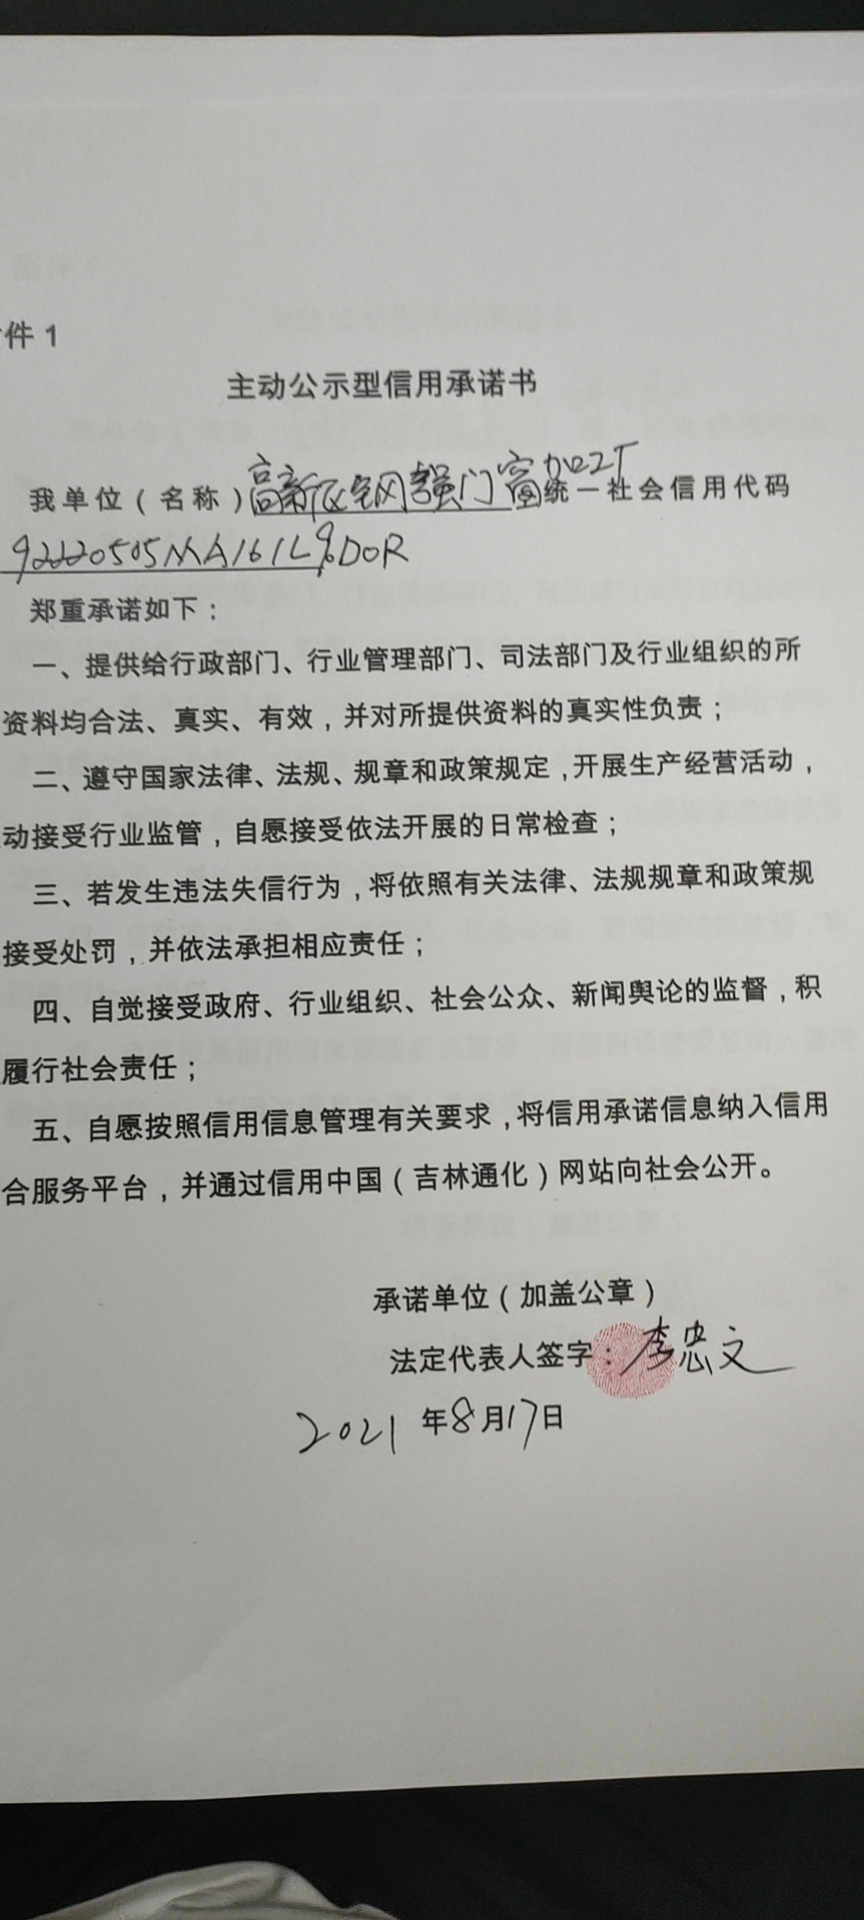 件 1
主动公示型信用承诺书
我单位（名称）高新区钢强门窗加工厂统一社会信用代码
92220505MA161L%D0R
郑重承诺如下：
一、提供给行政部门、行业管理部门、司法部门及行业组织的所
资料均合法、真实、有效，并对所提供资料的真实性负责；
二、遵守国家法律、法规、规章和政策规定，开展生产经营活动，
动接受行业监管，自愿接受依法开展的日常检查；
三、若发生违法失信行为，将依照有关法律、法规规章和政策规
接受处罚，并依法承担相应责任；
四、自觉接受政府、行业组织、社会公众、新闻舆论的监督，积
履行社会责任；
五、自愿按照信用信息管理有关要求，将信用承诺信息纳入信用
合服务平台，并通过信用中国（吉林通化）网站向社会公开。
承诺单位（加盖公章）
法定代表人签字：李忠文
2021 年8月17日